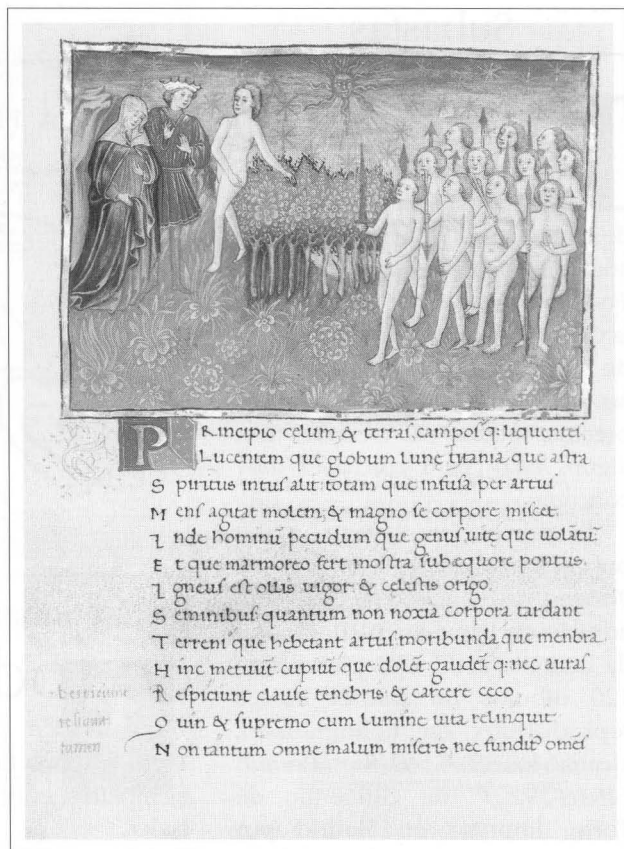 PRincipio celum & terras, campos q: liquentes
Lucentem que globum lune titania que astra
Spiritus intus alit: totam que infusa per artus
Mens agitat molem, & magno se corpore miscet.
Inde hominū pecudum que genus, uite que uolātū
Et que marmoreo fert mostra sub equore pontus.
Igneus est ollis uigor & celestis origo.
Seminibus quantum non noxia corpora tardant
Terreni que hebetant artus moribunda que menbra.
Hinc metuūt cupiūt que dolēt gaudēt q: nec auras
Respiciunt clause tenebris & carcere ceco.
Quin & supremo cum lumine uita relinquit
Non tantum omne malum miseris nec fundit᷒ omēs
reliqui
tamen